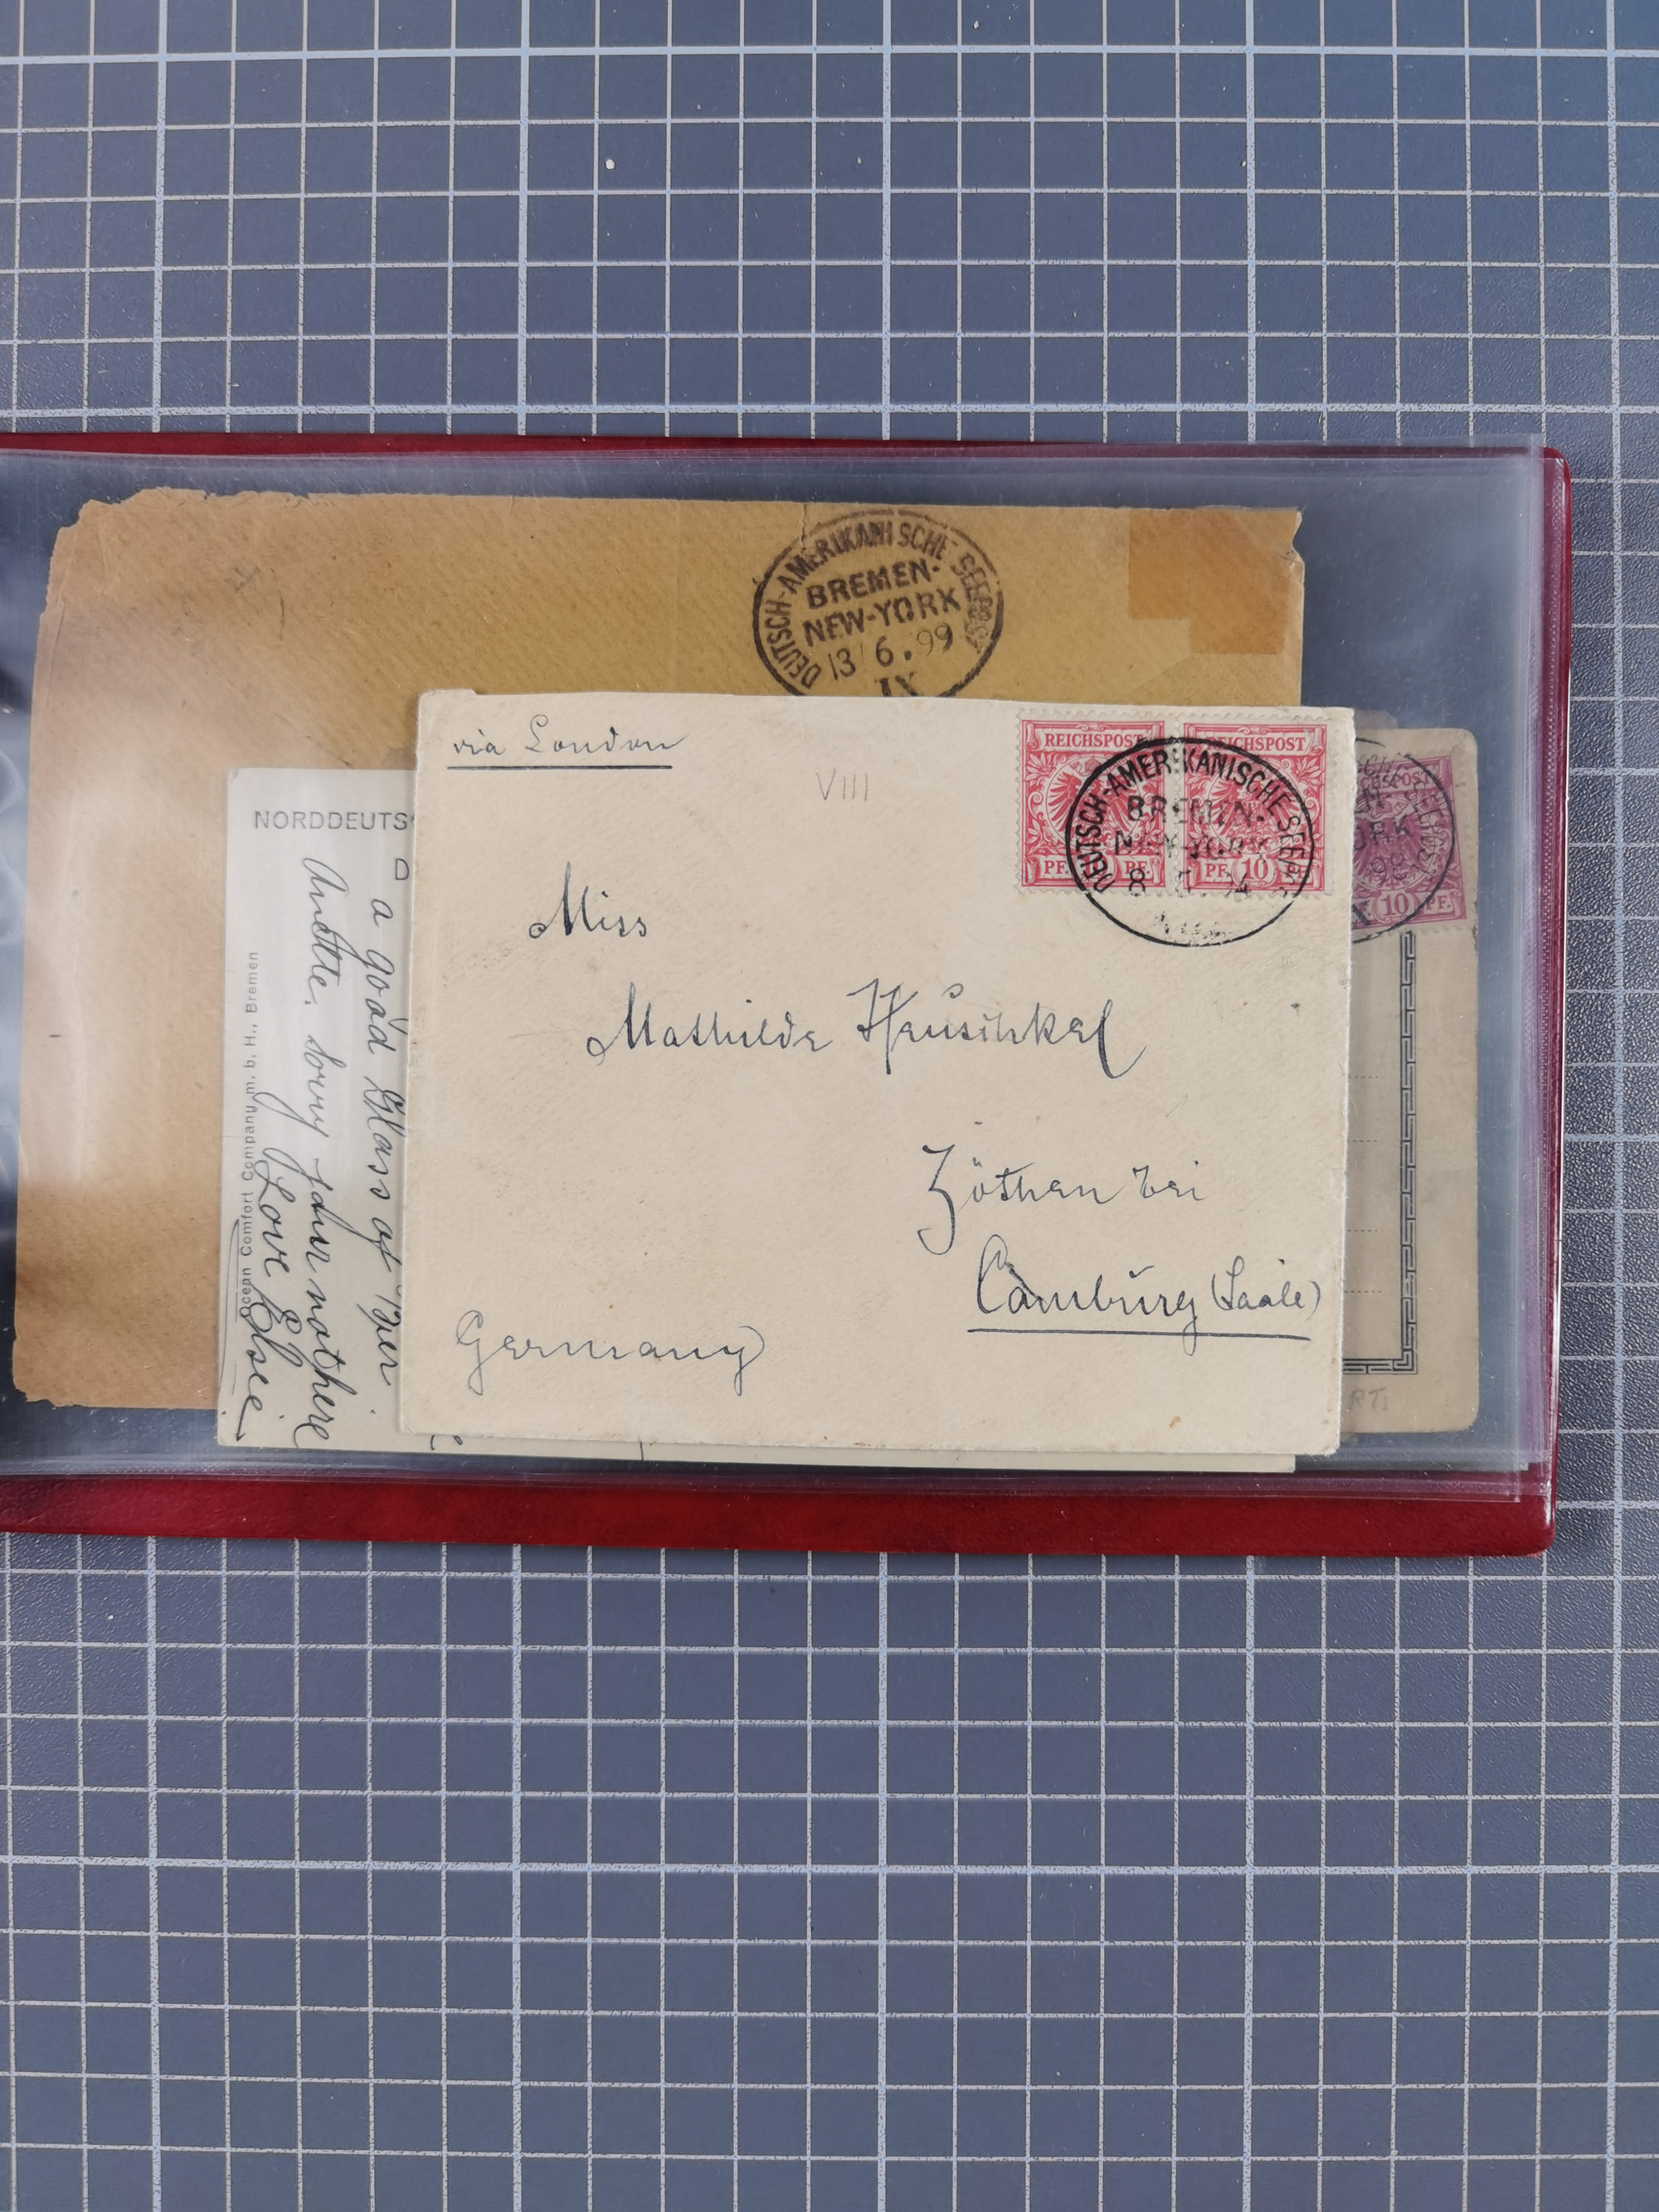 DEUTSCH-AMERIKANISCHE SEEPOST
BREMEN-
NEW-YORK
13/6.99
IX
via London
VIII
REICHSPOST
REICHSPOST
PF. PF.
PF. 10 PF.
DEUTSCH-AMERIKANISCHE SEEP
BREMEN-
NEW-YORK
8
Miss
Mathilde Heuschkel
Zöthen bei
Camburg (Saale)
Germany
NORDDEUTS
D
a good Glass of Bier
Anette. Sorry your not here
Love Elsie
Ocean Comfort Company m. b. H., Bremen
POST
ORK
98
X
10 PF.